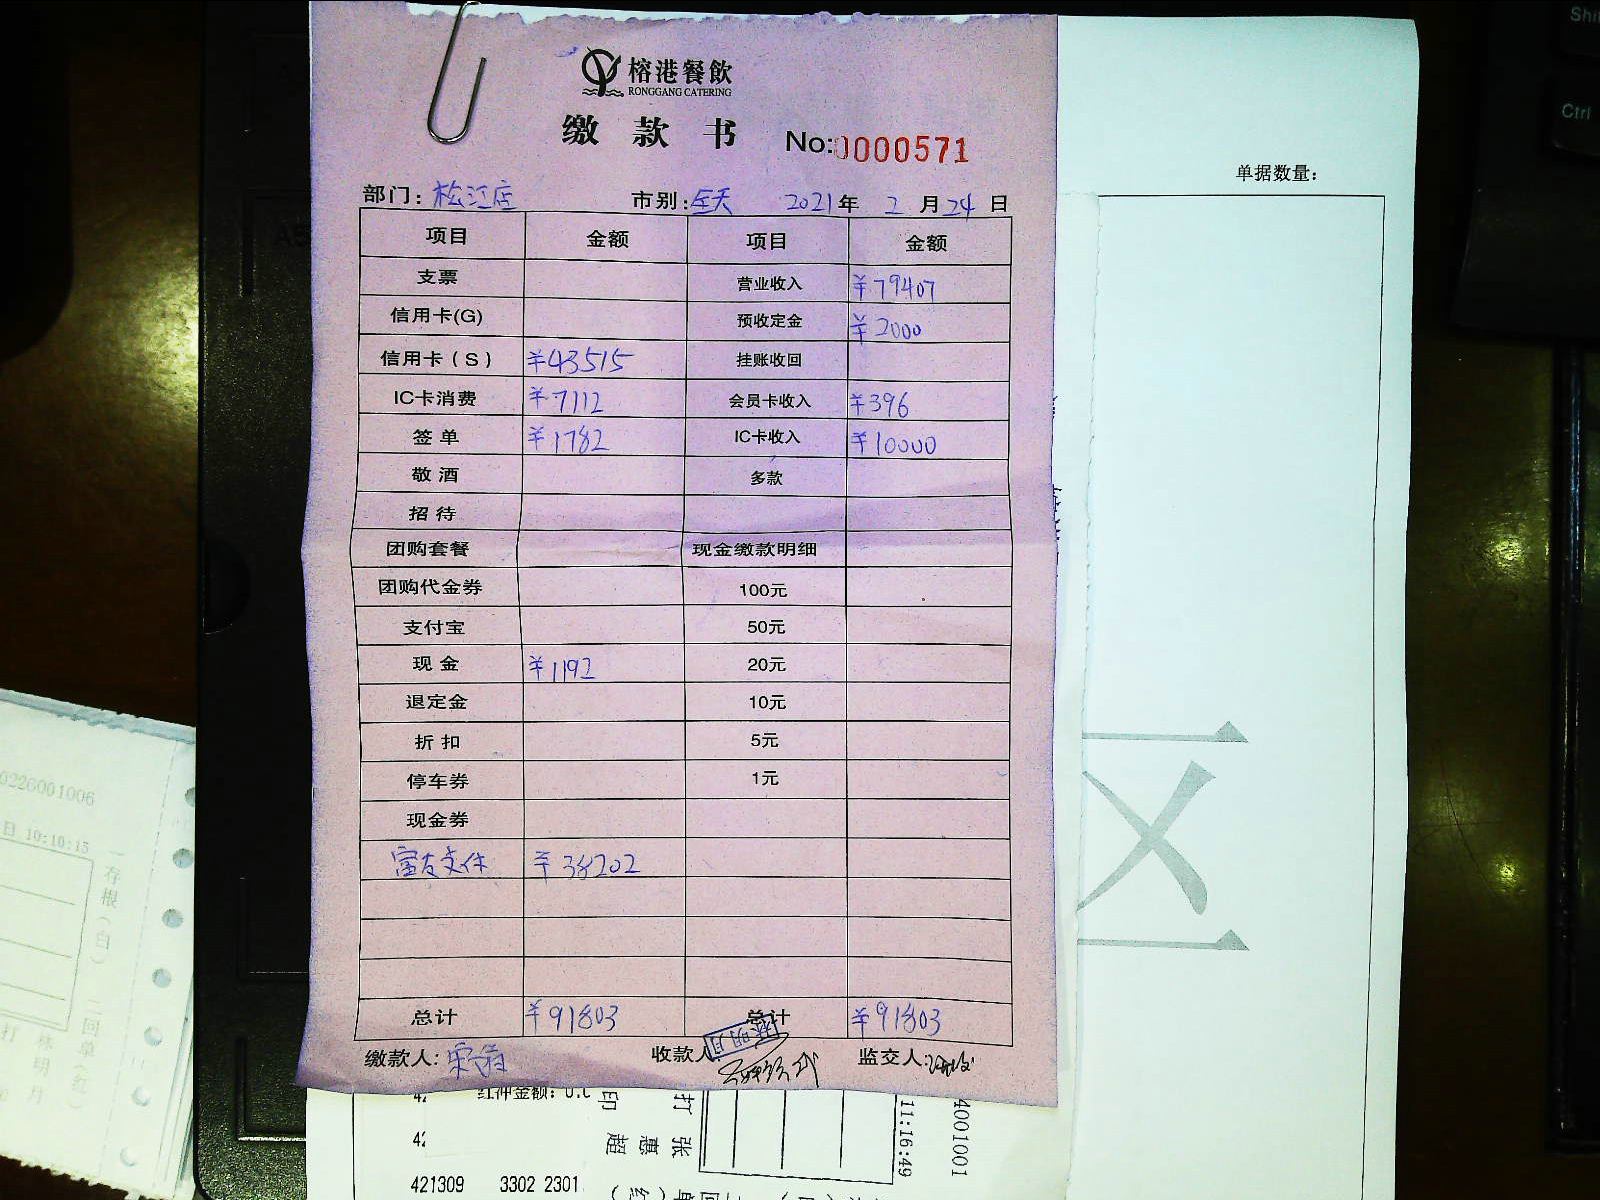 榕港餐飲
RONGGANG CATERING
缴 款 书 No:0000571
部门: 松江店 市别: 全天 2021年 2月24日
项目 金额 项目 金额
支票 营业收入 ¥79407
信用卡(G) 预收定金 ¥2000
信用卡(S) ¥43515 挂账收回
IC卡消费 ¥7112 会员卡收入 ¥396
签单 ¥1782 IC卡收入 ¥10000
敬酒 多款
招待
团购套餐 现金缴款明细
团购代金券 100元
支付宝 50元
现金 ¥1192 20元
退定金 10元
折扣 5元
停车券 1元
现金券
富友支付 ¥38202
总计 ¥91803 总计 ¥91803
缴款人: 收款人 监交人:
单据数量:
红冲金额: 0.0
421309 3302 2301
11:16:49
4001001
打 张惠超
印
0226001006
日 10:10:15
一存根(白) 二回单(红)
打 林明月
Shi
Ctrl